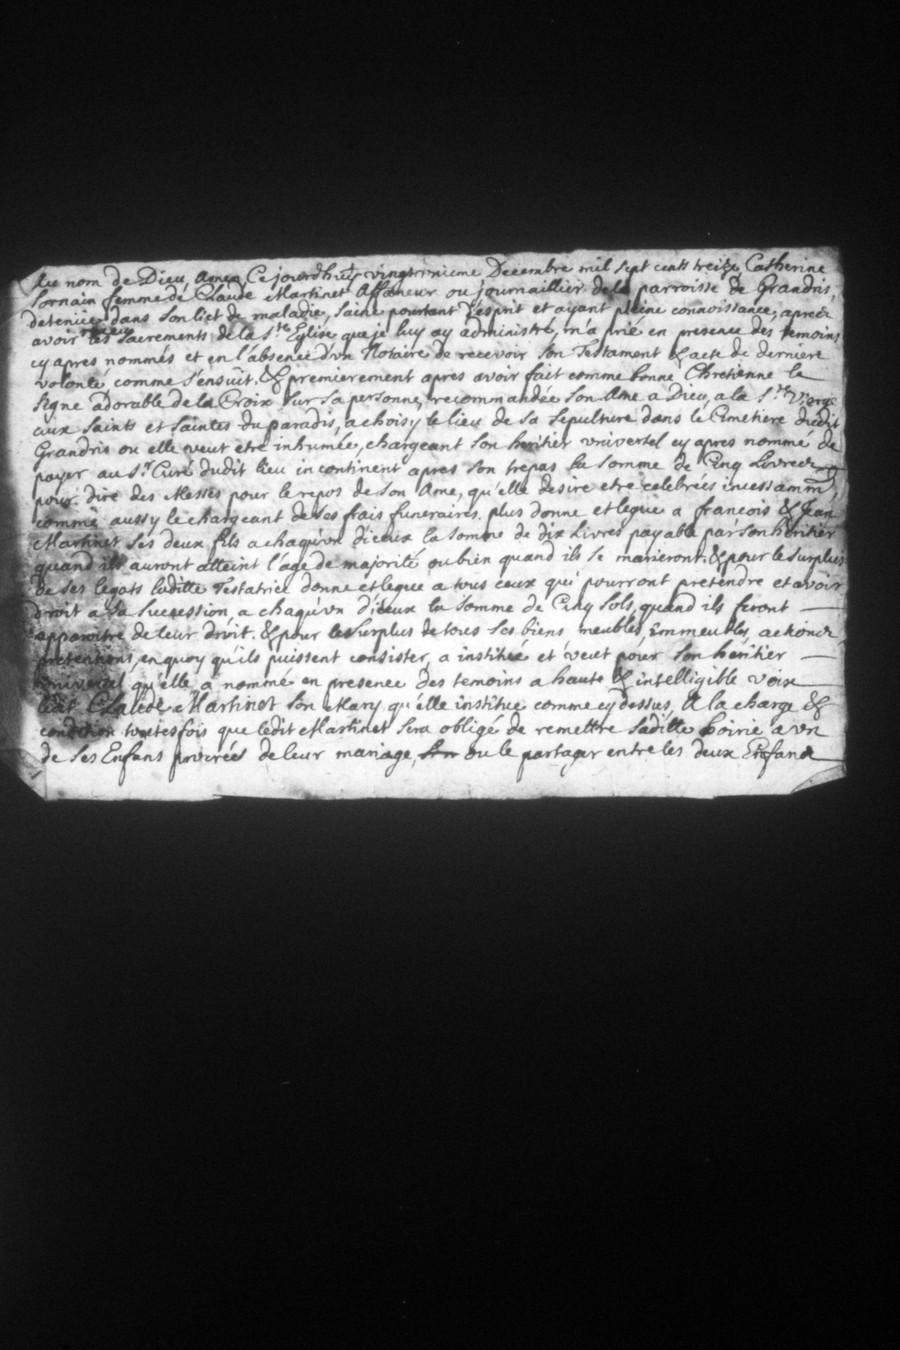 Au nom de Dieu, Amen, Ce jourdhuy vingtunieme Decembre mil sept cents treize Catherine
Sornain femme de Claude Martinet Affaneur ou journaillier de la parroisse de Grandris,
detenüee dans son lict de maladie, saine pourtant d'esprit et ayant pleine connoissance, aprez
avoir receu les Sacrements de la Ste Eglise que je luy ay administré, m'a prié en presence des temoins
cy apres nommés et en l'absence d'vn Notaire de recevoir son Testament & acte de derniere
volonté comme s'ensuit. & premierement apres avoir fait comme bonne Chretienne le
signe adorable de la Croix sur sa personne, recommandée son Ame a Dieu, a la Ste Vierge
aux Saints et Saintes du paradis, a choisy le lieu de sa sepulture dans le Cimetiere dudit
Grandris ou elle veut etre inhumée, chargeant son heritier vniversel cy apres nommé de
payer au Sr Curé dudit lieu incontinent apres son trepas la somme de Cinq Livres
pour dire des Messes pour le repos de son Ame, qu'elle desire etre celebrées incessamm.t
comme aussy le chargeant de ses frais funeraires. plus donne et legue a francois & Jean
Martinet ses deux fils a chaqu'vn d'iceux la somme de dix Livres payable par son heritier
quand ils auront atteint l'age de majorité ou bien quand ils se marieront. & pour le surplus
de ses legats laditte Testatrice donne et legue a tous ceux qui pourront pretendre et avoir
droit a sa succession, a chaqu'vn d'iceux la somme de Cinq sols, quand ils feront
apparoitre de leur droit. & pour le surplus de tous ses biens meubles, Immeubles, actions
pretentions, en quoy qu'ils puissent consister, a institüé et veut pour son heritier
vniversel qu'elle a nommé en presence des temoins a haute & intelligible voix
Claude Martinet son Mary qu'elle institue comme cy dessus. A la charge &
condition toutesfois que ledit Martinet sera obligé de remettre saditte hoirie a vn
de ses Enfans procreés de leur mariage, ou le partager entre les deux Enfans